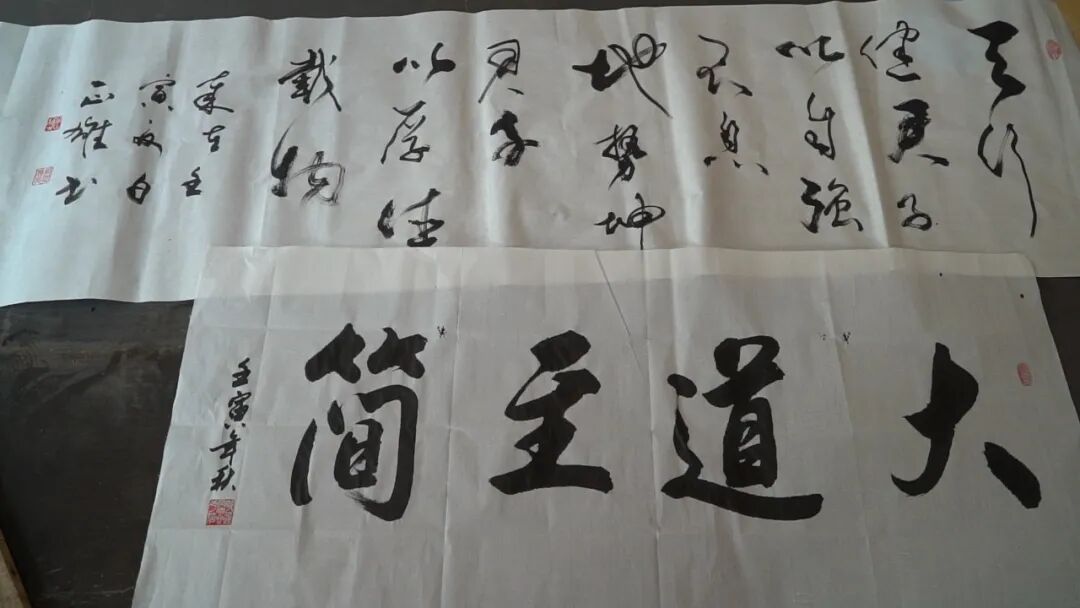 天行
健君子
以自强
不息
地勢坤
君子
以厚德
載物
歲在壬
寅夏日
正雄书
大道至简
壬寅年秋